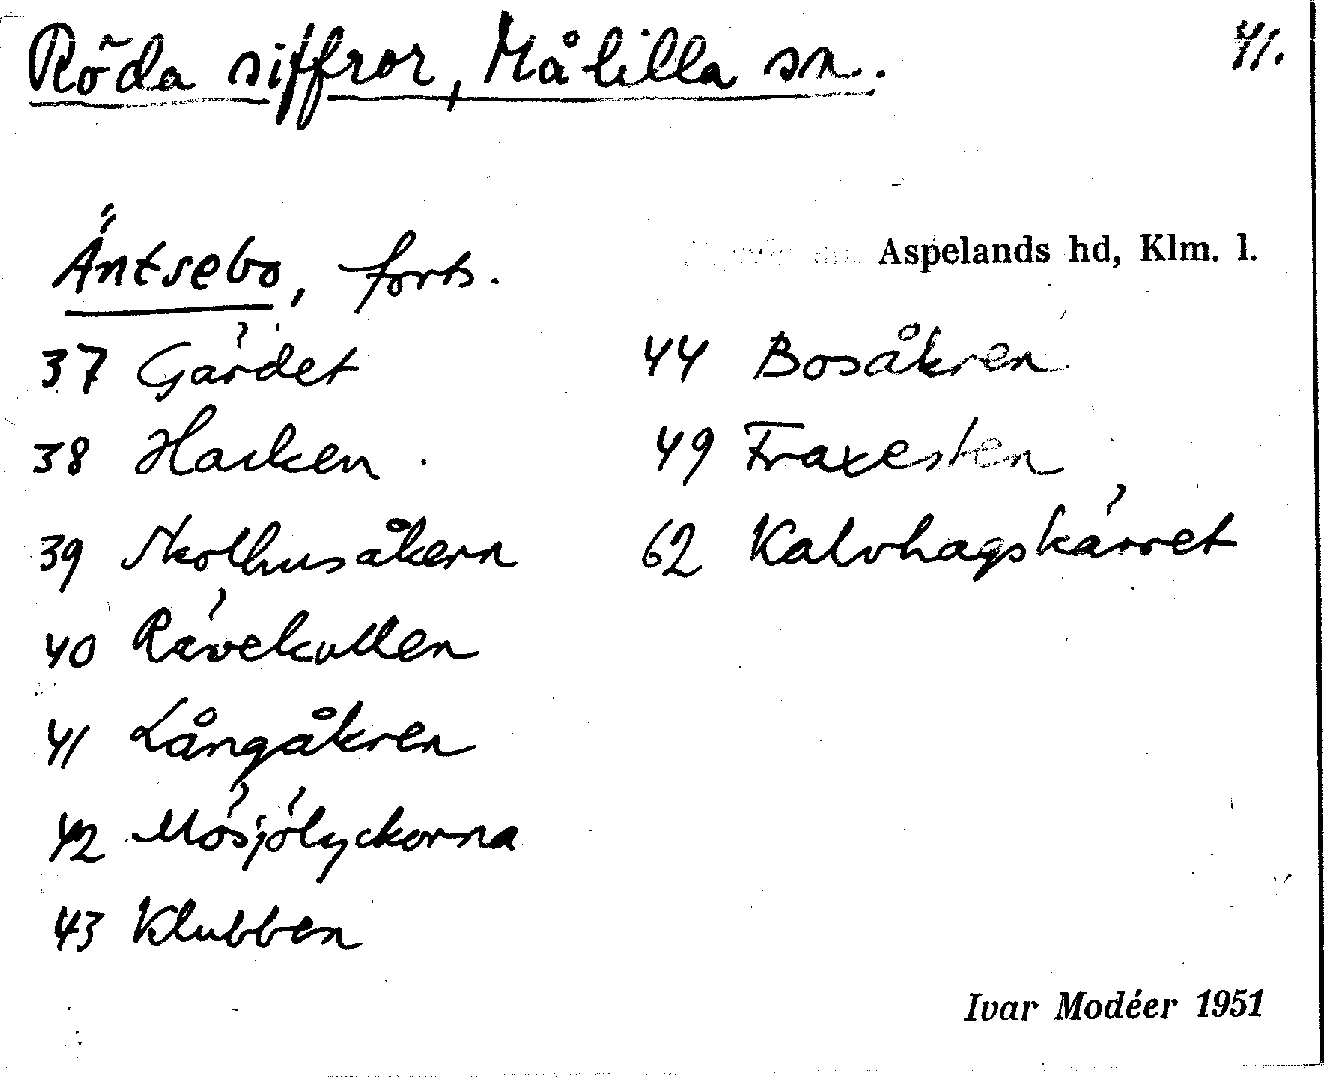 Röda siffror, Målilla sn.
41.
Äntsebo, forts.
Aspelands hd, Klm. l.
37 Gärdet
38 Hacken
39 Skolhusåkern
40 Rävekullen
41 Långåkren
42 Mösjölyckorna
43 Klubben
44 Bosåkren
49 Fraxesten
62 Kalvhagskärret
Ivar Modéer 1951